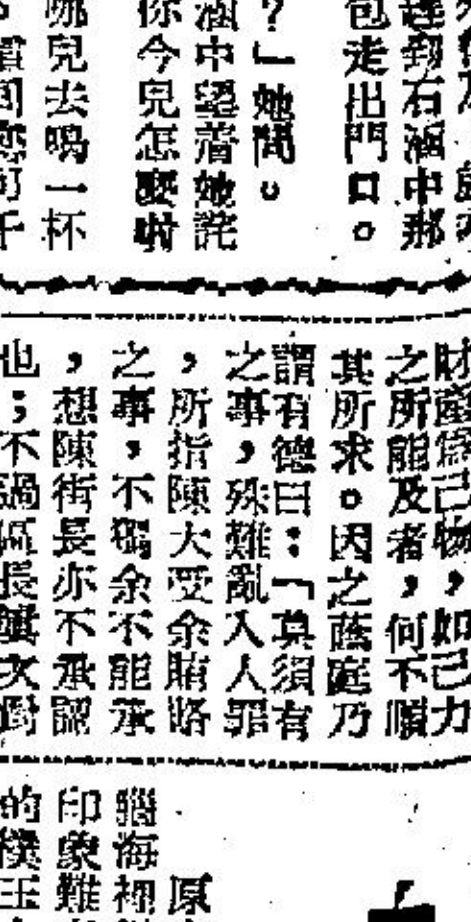 到石涵中那
包走出門口。
？」她問。
涵中望着她詫
你今兒怎麼啦
哪兒去喝一杯
財產爲己物，如己力
之所能及者，何不順
其所求。因之蔭庭乃
謂有德曰：「莫須有
之事，殊難亂入人罪
，所指陳大受余賄賂
之事，不獨余不能承
，想陳街長亦不承認
也；不過區長
原
腦海裡
印象難
的樸玉